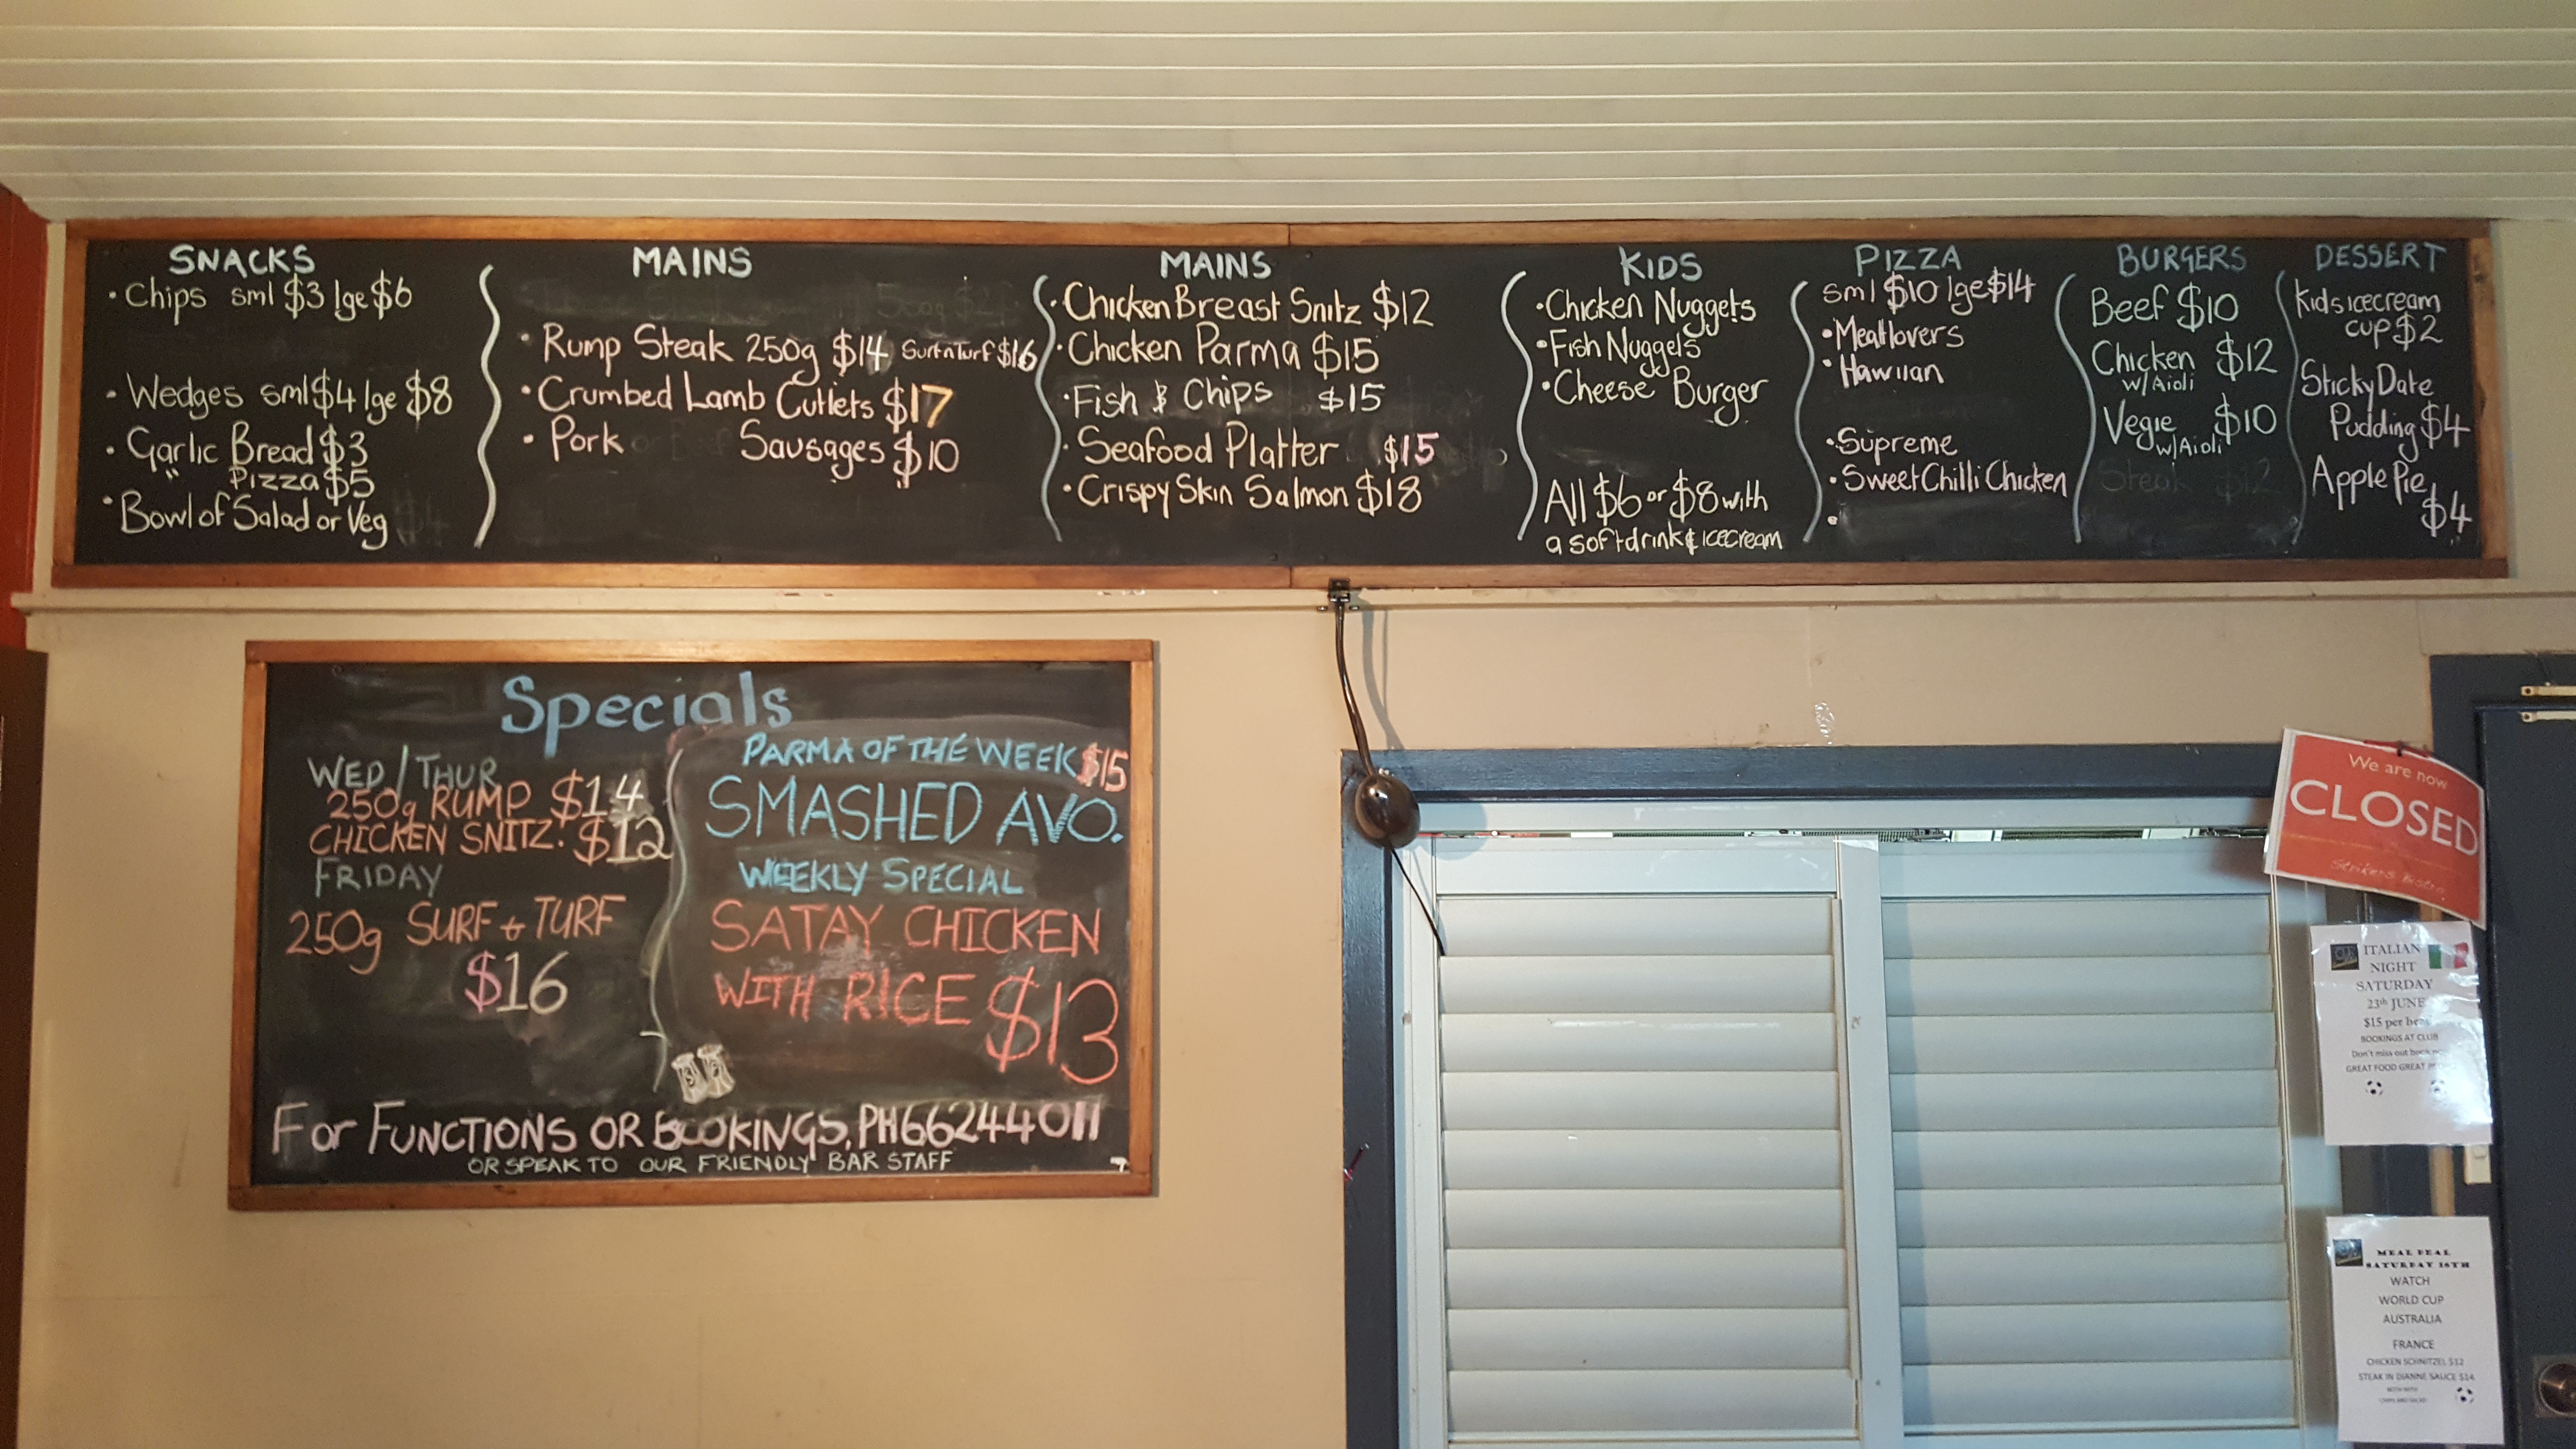 SNACKS
· Chips sml $3 lge $6
· Wedges sml $4 lge $8
· Garlic Bread $3
" Pizza $5
· Bowl of Salad or Veg $4
MAINS
· Rump Steak 250g $14 Surf n Turf $16
· Crumbed Lamb Cutlets $17
· Pork Sausages $10
MAINS
· Chicken Breast Snitz $12
· Chicken Parma $15
· Fish & Chips $15
· Seafood Platter $15
· Crispy Skin Salmon $18
KIDS
· Chicken Nuggets
· Fish Nuggets
· Cheese Burger
All $6 or $8 with
a softdrink & icecream
PIZZA
sml $10 lge $14
· Meatlovers
· Hawiian
· Supreme
· Sweet Chilli Chicken
BURGERS
Beef $10
Chicken $12
w/ Aioli
Vegie $10
w/ Aioli
Steak $12
DESSERT
Kids icecream
cup $2
Sticky Date
Pudding $4
Apple Pie
$4
Specials
WED / THUR
250g RUMP $14
CHICKEN SNITZ. $12
FRIDAY
250g SURF + TURF
$16
PARMA OF THE WEEK $15
SMASHED AVO.
WEEKLY SPECIAL
SATAY CHICKEN
WITH RICE $13
FOR FUNCTIONS OR BOOKINGS, PH 66244011
OR SPEAK TO OUR FRIENDLY BAR STAFF
We are now
CLOSED
Strikers Bistro
ITALIAN
NIGHT
SATURDAY
23th JUNE
$15 per
BOOKINGS AT CLUB
Don't miss out
GREAT FOOD GREAT
MEAL DEAL
SATURDAY 16TH
WATCH
WORLD CUP
AUSTRALIA
FRANCE
CHICKEN SCHNITZEL $12
STEAK IN DIANNE SAUCE $14
BOTH WITH
CHIPS AND SALAD